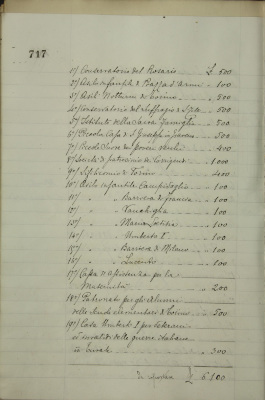 717
1°/ Conservatorio del Rosario £ 500
2°/ Asilo infantile di Piazza d'Armi " 100
3°/ Asili Notturni di Torino " 500
4°/ Conservatorio del Suffragio di S. Zita " 500
5°/ Istituto della Sacra Famiglia " 500
6°/ Piccola Casa di S. Giuseppe " 500
7°/ " 400
8°/ Società di patrocinio " 1000
9°/ " di Torino " 400
10°/ Asilo infantile Campidoglio " 100
11°/ " " Barriera di Francia " 100
12°/ " " Vanchiglia " 100
13°/ " " Maria Letizia " 100
14°/ " " Umberto I° " 100
15°/ " " Barriera di Milano " 100
16°/ " " Lucento " 100
17°/ Cassa di assistenza per la
Maternità " 200
18°/ Patronato per gli alunni
delle Scuole elementari di Torino " 500
19°/ Casa Umberto I per veterani
ed invalidi delle guerre italiane
in Turate " 300
Da riportare £ 6.100